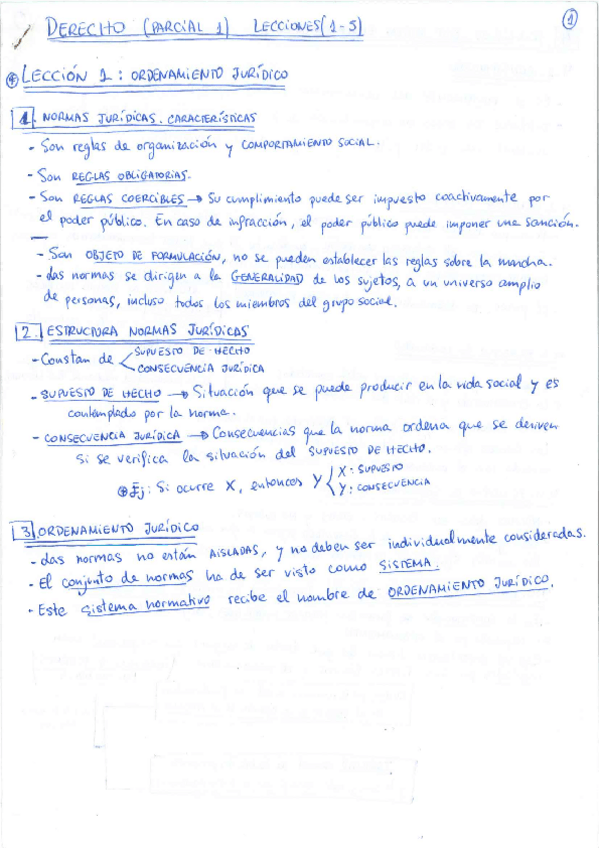 DERECHO (PARCIAL 1) LECCIONES (1-5)
1
LECCIÓN 1: ORDENAMIENTO JURÍDICO
1. NORMAS JURÍDICAS. CARACTERÍSTICAS
- Son reglas de organización y COMPORTAMIENTO SOCIAL.
- Son REGLAS OBLIGATORIAS.
- Son REGLAS COERCIBLES → Su cumplimiento puede ser impuesto coactivamente por
el poder público. En caso de infracción, el poder público puede imponer una sanción.
- Son OBJETO DE FORMULACIÓN, no se pueden establecer las reglas sobre la marcha.
- Las normas se dirigen a la GENERALIDAD de los sujetos, a un universo amplio
de personas, incluso todos los miembros del grupo social.
2. ESTRUCTURA NORMAS JURÍDICAS
- Constan de SUPUESTO DE HECHO
CONSECUENCIA JURÍDICA
- SUPUESTO DE HECHO → Situación que se puede producir en la vida social y es
contemplado por la norma.
- CONSECUENCIA JURÍDICA → Consecuencias que la norma ordena que se deriven
si se verifica la situación del SUPUESTO DE HECHO.
Ej: Si ocurre X, entonces Y X: SUPUESTO
Y: CONSECUENCIA
3. ORDENAMIENTO JURÍDICO
- Las normas no están AISLADAS, y no deben ser individualmente consideradas.
- El conjunto de normas ha de ser visto como SISTEMA.
- Este sistema normativo recibe el nombre de ORDENAMIENTO JURÍDICO.